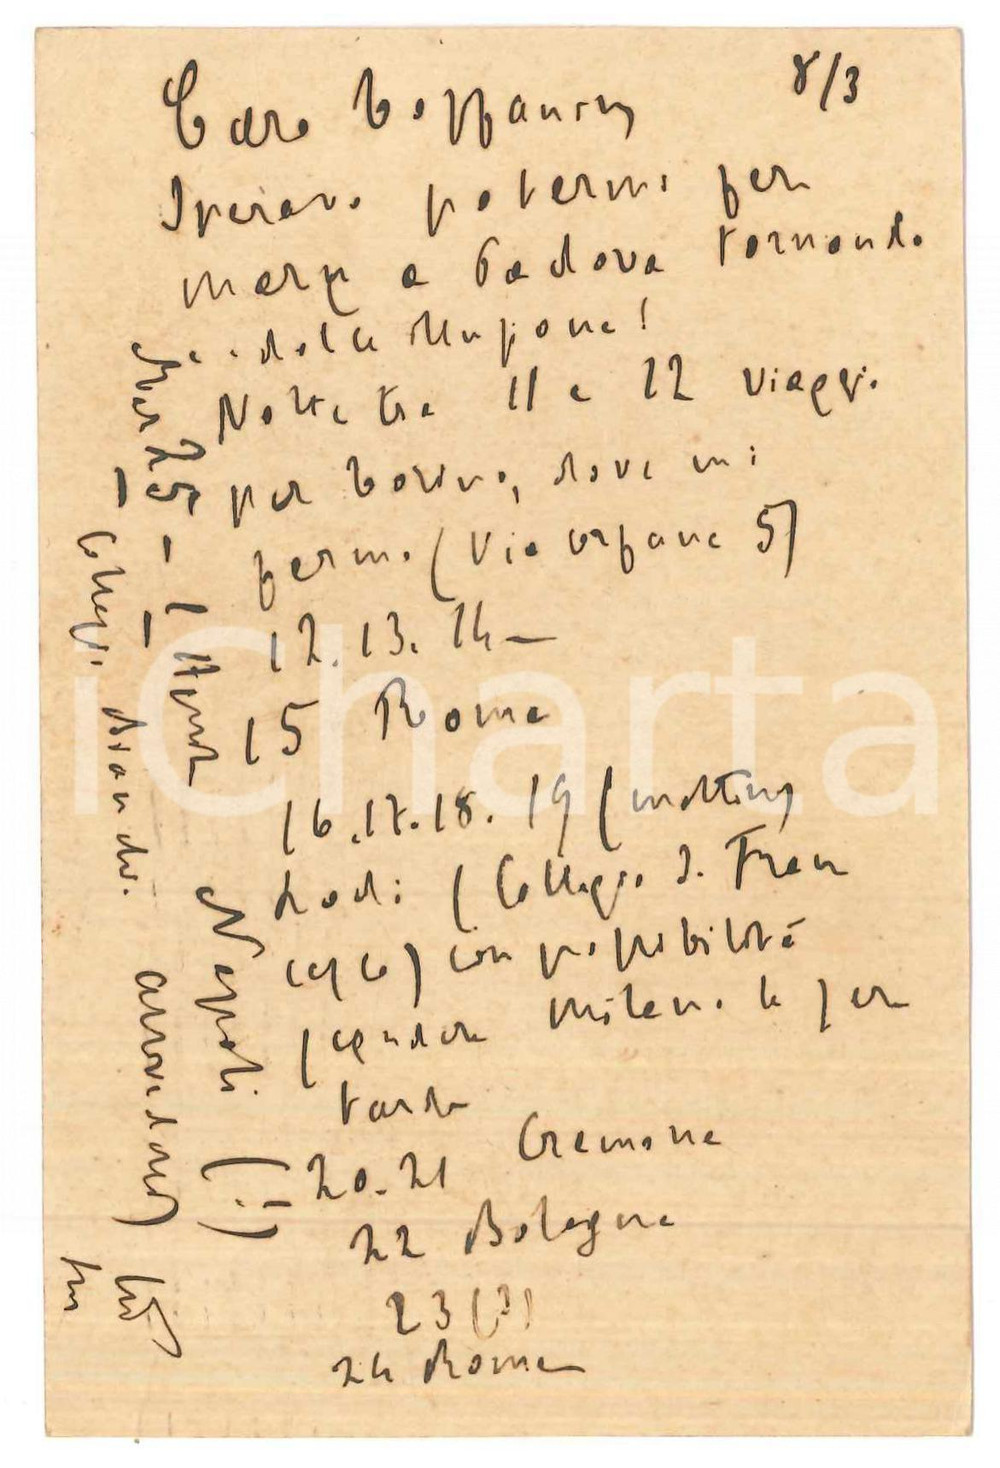 8/3
Caro Toffanin,
Speravo potermi fer
mare a Padova tornando
dalla
Notte tra 11 e 12 viaggio
per Torino, dove mi
fermo (Via Orfane 5)
12. 13. 14 —
15 Roma
16. 17. 18. 19 (mattina)
Lodi (Collegio S. Fran
cesco) con possibilità
scendere Milano la ser
tarda
20. 21 Cremona
22 Bologna
23 (?)
24 Roma
Dal 25 - 1
Napoli (!)
Collegio
arrivederci
iCharta